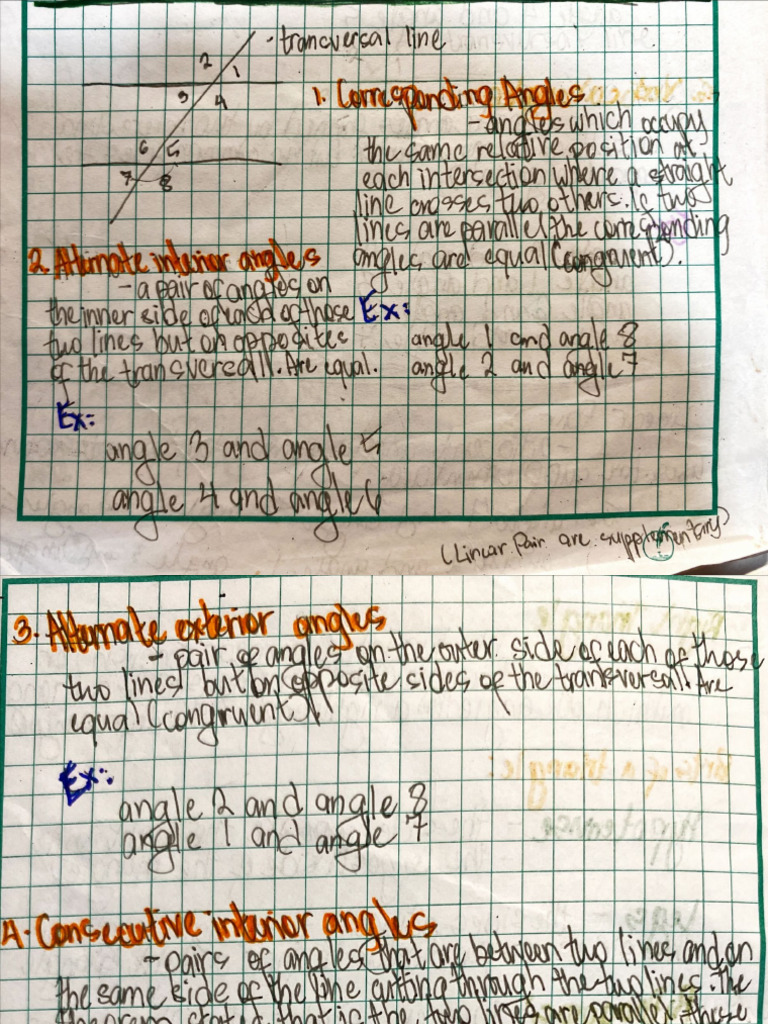 - transversal line
2
1
3
4
6
5
7
8
1. Corresponding Angles
- angles which occupy
the same relative position at
each intersection where a straight
line crosses two others. If two
lines are parallel, the corresponding
angles are equal (congruent).
Ex:
angle 1 and angle 8
angle 2 and angle 7
2. Alternate interior angles
- a pair of angles on
the inner side of each of those
two lines but on opposites
of the transversall. Are equal.
Ex:
angle 3 and angle 5
angle 4 and angle 6
(Linear Pair are supplementary)
3. Alternate exterior angles
- pair of angles on the outer side of each of those
two lines but on opposite sides of the transversal. Are
equal (congruent).
Ex:
angle 2 and angle 8
angle 1 and angle 7
4. Consecutive interior angles
- pairs of angles that are between two lines and on
the same side of the line cutting through the two lines. The
theorem stated that if the two lines are parallel these